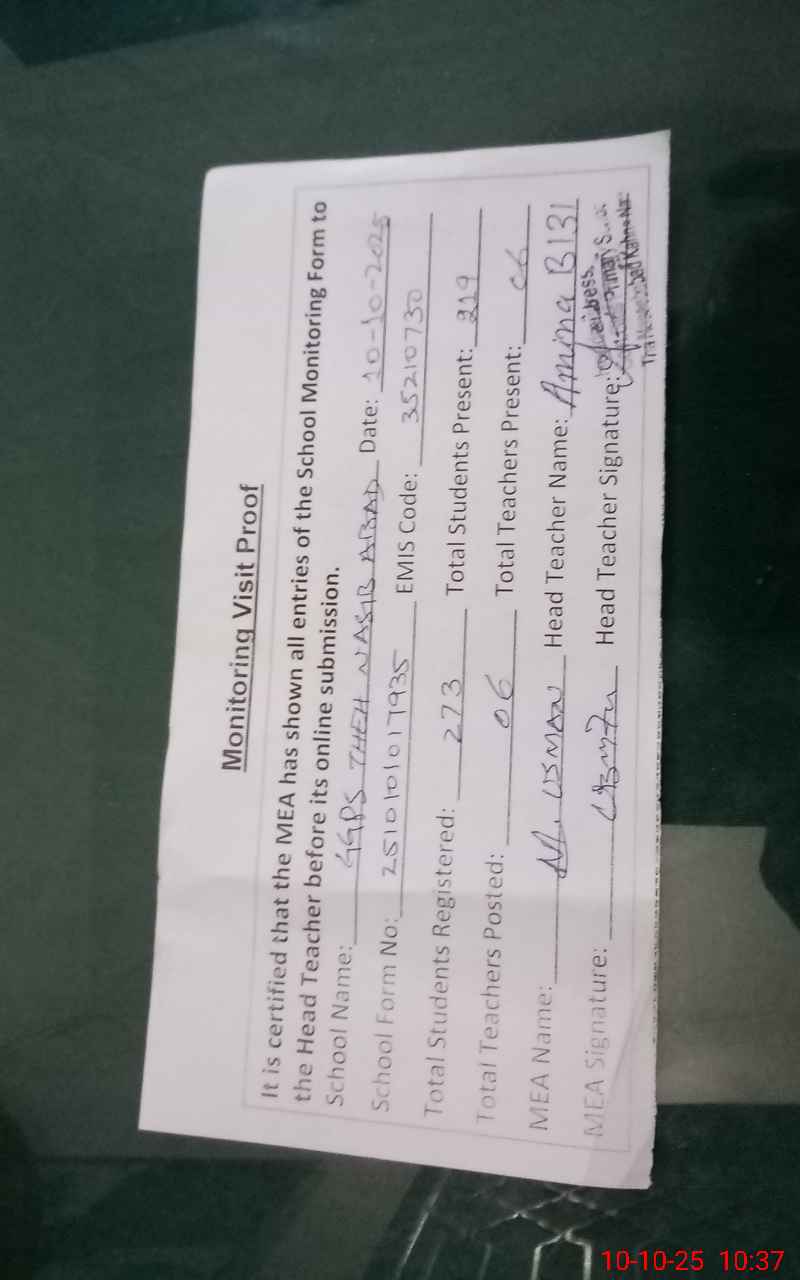 Monitoring Visit Proof
It is certified that the MEA has shown all entries of the School Monitoring Form to
the Head Teacher before its online submission.
School Name: GGPS THEH NASIR ABAD Date: 10-10-2025
School Form No: 2510101017935 EMIS Code: 35210730
Total Students Registered: 273 Total Students Present: 219
Total Teachers Posted: 06 Total Teachers Present: 06
MEA Name: M. USMAN Head Teacher Name: Amina BIBI
MEA Signature: Head Teacher Signature:
Primary
Kahna Nau
10-10-25 10:37